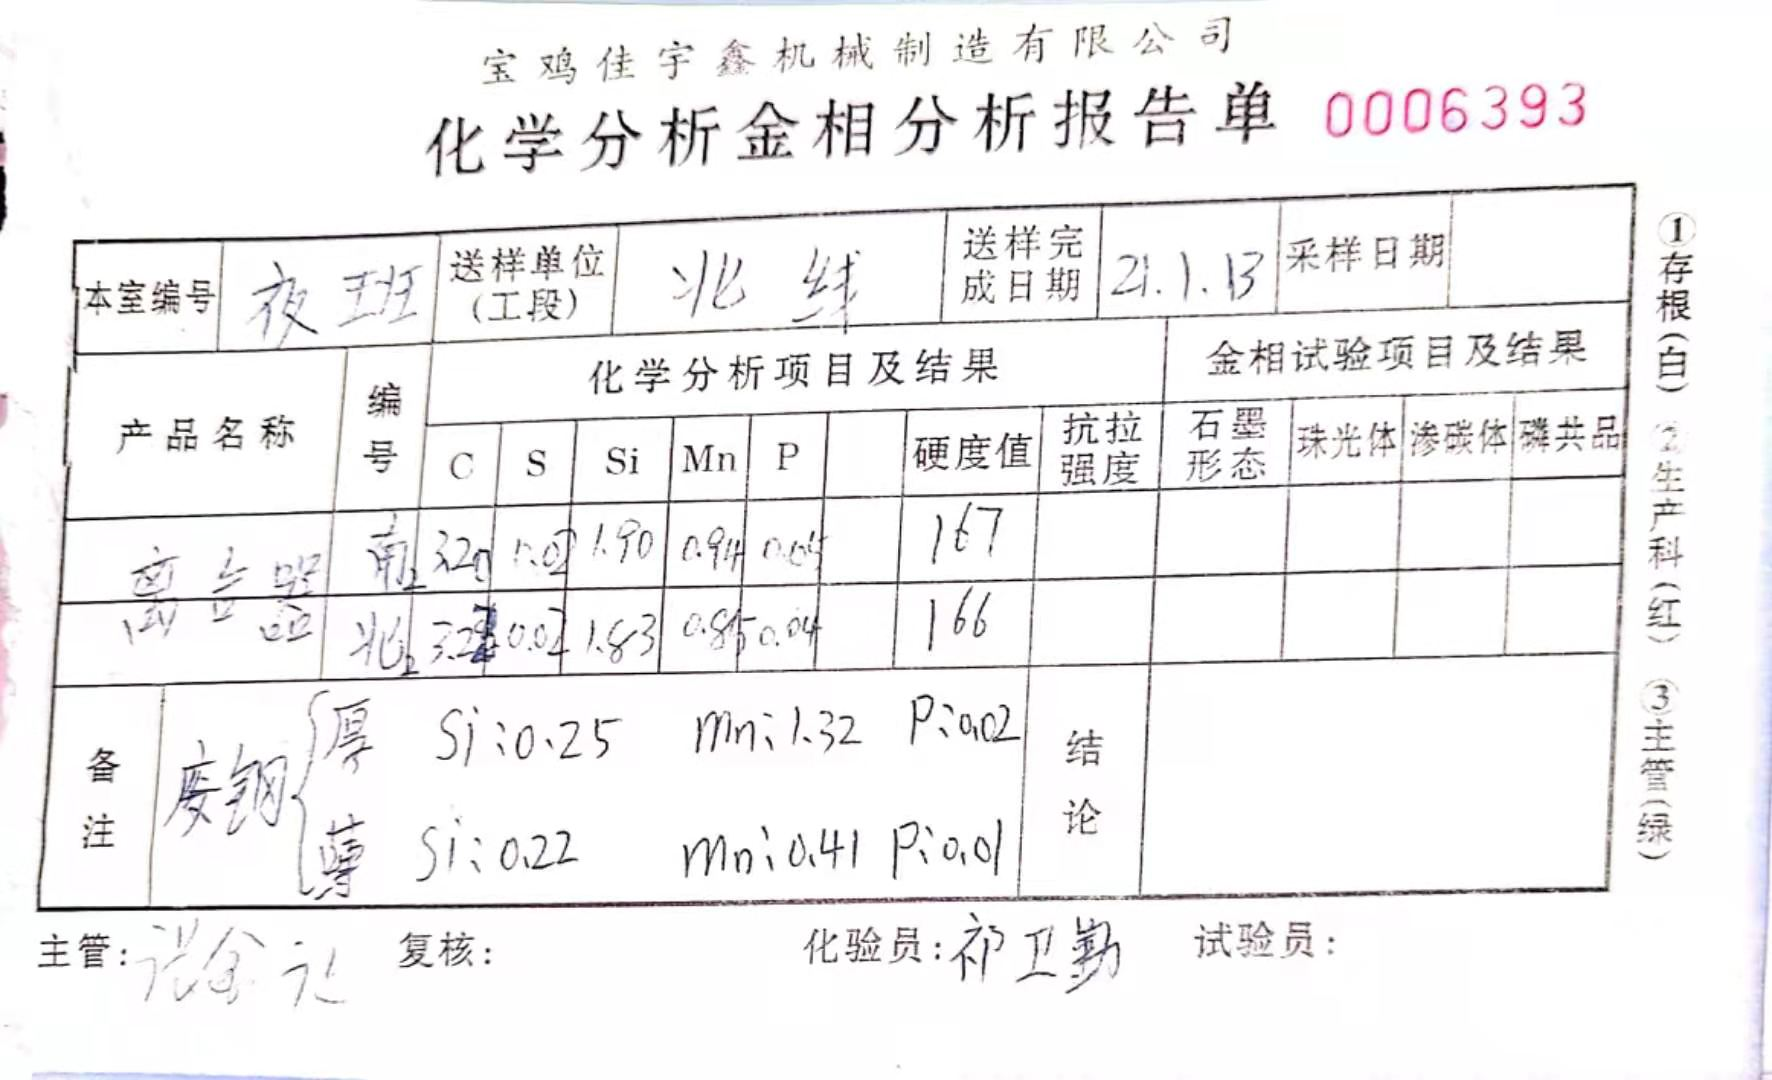 宝鸡佳宇鑫机械制造有限公司
化学分析金相分析报告单 0006393
本室编号 夜班 送样单位(工段) 北线 送样完成日期 21.1.13 采样日期
产品名称 编号 化学分析项目及结果 金相试验项目及结果
C S Si Mn P 硬度值 抗拉强度 石墨形态 珠光体 渗碳体 磷共品
离合器 南2 3.20 1.90 0.94 0.05 167
北2 0.02 1.83 0.85 0.04 166
备注 废钢 厚 Si:0.25 Mn:1.32 P:0.02 结论
薄 Si:0.22 Mn:0.41 P:0.01
主管: 复核: 化验员:祁卫勤 试验员:
①存根(白) ②生产科(红) ③主管(绿)